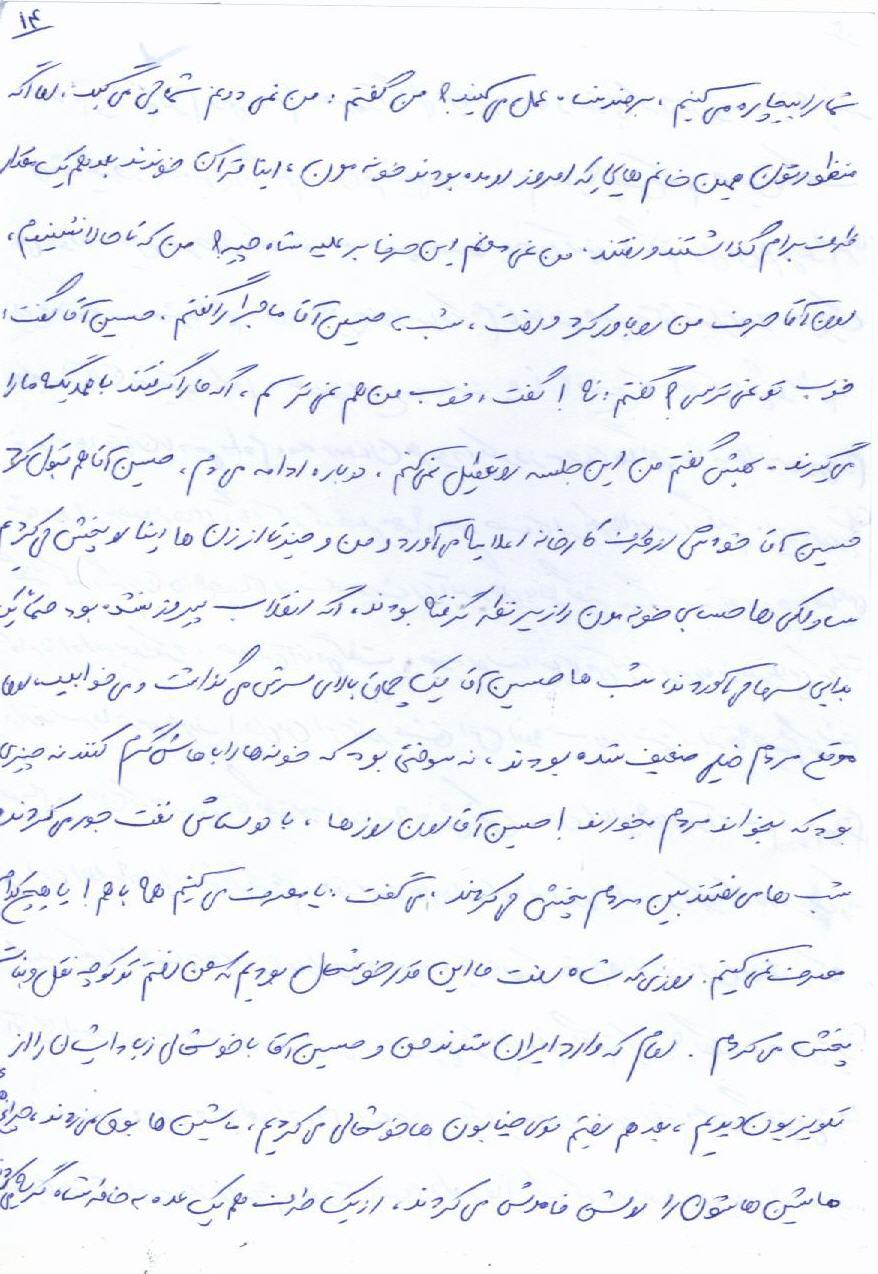 ۱۴
شما را بیچاره می کنیم ، بر ضد شاه عمل می کنید؟ من گفتم : من نمی دونم شما چی می گید ، اما اگه
منظورتون همین خانم هایی که امروز اومده بودند خونه مون ، اینا قرآن خوندند بعد هم یک مقدار
ظرف برام گذاشتند و رفتند . من نمی دونم این حرفا بر علیه شاه چیه؟ من که تا حالا نشنیدم ،
اون آقا حرف من رو باور کرد و رفت ، شب به حسین آقا ماجرا را گفتم . حسین آقا گفت :
خوب تو نمی ترسی؟ گفتم : نه ! گفت ، خوب من هم نمی ترسم ، اگه ما را گرفتند با همدیگه ما را
می گیرند . بهش گفتم من این جلسه رو تعطیل نمی کنم . دوباره ادامه می دم ، حسین آقا هم قبول کرد
حسین آقا خودش از طرف کارخانه اعلامیه می آورد و من و چند تا از زن ها اینا رو پخش می کردیم
ساواکی ها حسابی خونه مون را زیر نظر گرفته بودند ، اگه انقلاب پیروز نشده بود حتماً یک
بلایی سرما می آوردند ، شب ها حسین آقا یک چماق بالای سرش می گذاشت و می خوابید ، اون
موقع مردم خیلی ضعیف شده بودند ، نه سوختی بود که خونه ها را باهاش گرم کنند نه چیزی
بود که بخواند مردم بخورند ! حسین آقا اون روزها ، با دوستاش نفت جور می کردند
شب ها می رفتند بین مردم پخش می کردند . می گفت : یا مصرف می کنیم همه با هم ! یا هیچ کدام
مصرف نمی کنیم . روزی که شاه رفت ما این قدر خوشحال بودیم که من رفتم تو کوچه نقل و نبات
پخش می کردم . امام که وارد ایران شدند من و حسین آقا با خوشحالی زیاد ایشان را از
تلویزیون دیدیم ، بعد هم رفتیم توی خیابون ها خوشحالی می کردیم ، ماشین ها بوق می زدند ، چراغ
ماشین هاشون را روشن خاموش می کردند ، از یک طرف هم یک عده به خاطر شاه گریه می کردند